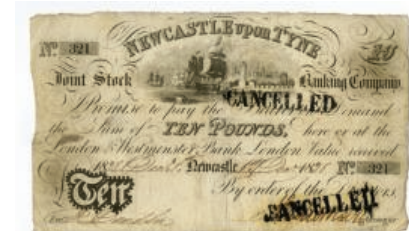 Nº 321 NEWCASTLE upon TYNE £10
Joint Stock Banking Company
I Promise to pay the Demand
CANCELLED
the Sum of TEN POUNDS, here or at the
London & Westminster Bank London Value received
Newcastle Nº 321
Ten By order of the Directors,
CANCELLED